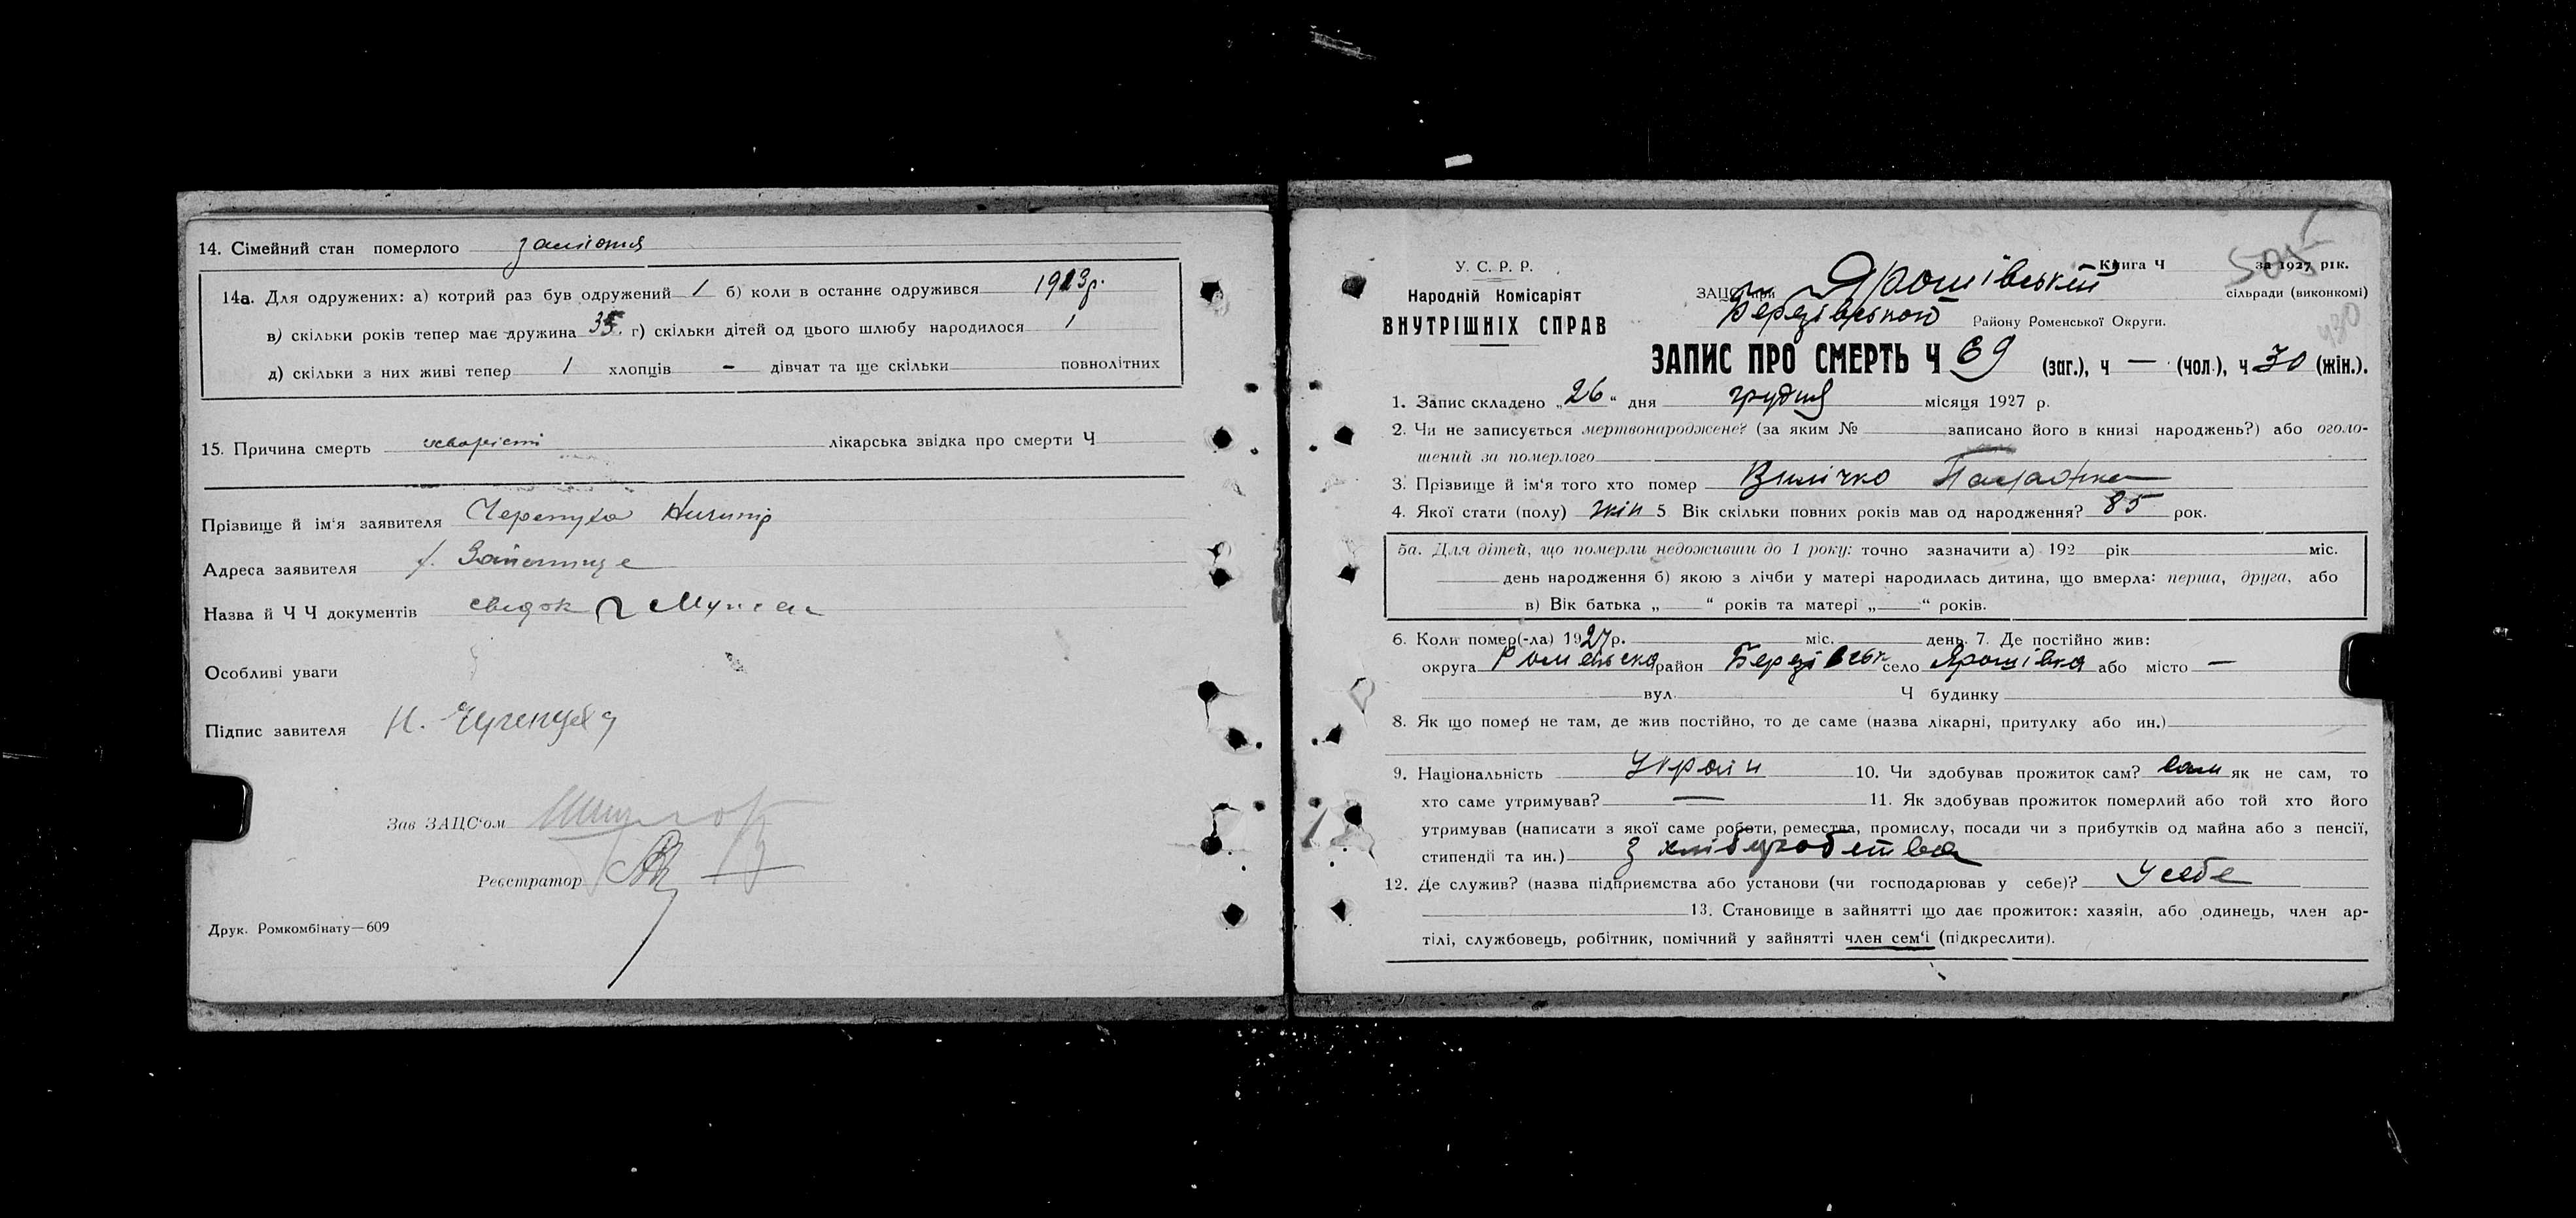 14. Сімейний стан померлого заміжня
14а. Для одружених: а) котрий раз був одружений 1 б) коли в останнє одружився 1913р.
в) скільки років тепер має дружина 35. г) скільки дітей од цього шлюбу народилося 1
д) скільки з них живі тепер 1 хлопців - дівчат та ще скільки повнолітних
15. Причина смерть лікарська звідка про смерти Ч
Прізвище й ім'я заявителя Черепуха
Адреса заявителя
Назва й Ч Ч документів свидок
Особливі уваги
Підпис завителя
Зав ЗАЦС'ом
Реєстратор
Друк. Ромкомбінату—609
505
У. С. Р. Р. Книга Ч за 1927 рік.
Народній Комісаріят ЗАЦС при Ярошівській сільради (виконкомі)
ВНУТРІШНІХ СПРАВ Березівською Району Роменської Округи.
430
ЗАПИС ПРО СМЕРТЬ Ч 69 (заг.), ч — (чол.), ч 30 (жін.).
1. Запис складено „26“ дня грудня місяця 1927 р.
2. Чи не записується мертвонароджене? (за яким № записано його в книзі народжень?) або оголо-
шений за померлого
3. Прізвище й ім'я того хто помер Величко
4. Якої стати (полу) жін 5 Вік скільки повних років мав од народження? 85 рок.
5а. Для дітей, що померли недоживши до 1 року: точно зазначити а) 192 рік міс.
день народження б) якою з лічби у матері народилась дитина, що вмерла: перша, друга, або
в) Вік батька „ “ років та матері „ “ років.
6. Коли помер(-ла) 1927р. міс. день. 7. Де постійно жив:
округа Роменська район Березівськ село Ярошівка або місто —
вул. Ч будинку
8. Як що помер не там, де жив постійно, то де саме (назва лікарні, притулку або ин.)
9. Національність Україн 10. Чи здобував прожиток сам? сам як не сам, то
хто саме утримував? — 11. Як здобував прожиток померлий або той хто його
утримував (написати з якої саме роботи, ремества, промислу, посади чи з прибутків од майна або з пенсії,
стипендії та ин.) З хліборобства
12. Де служив? (назва підприємства або установи (чи господарював у себе)? У себе
13. Становище в зайнятті що дає прожиток: хазяін, або одинець, член ар-
тілі, службовець, робітник, помічний у зайнятті член сем'ї (підкреслити).